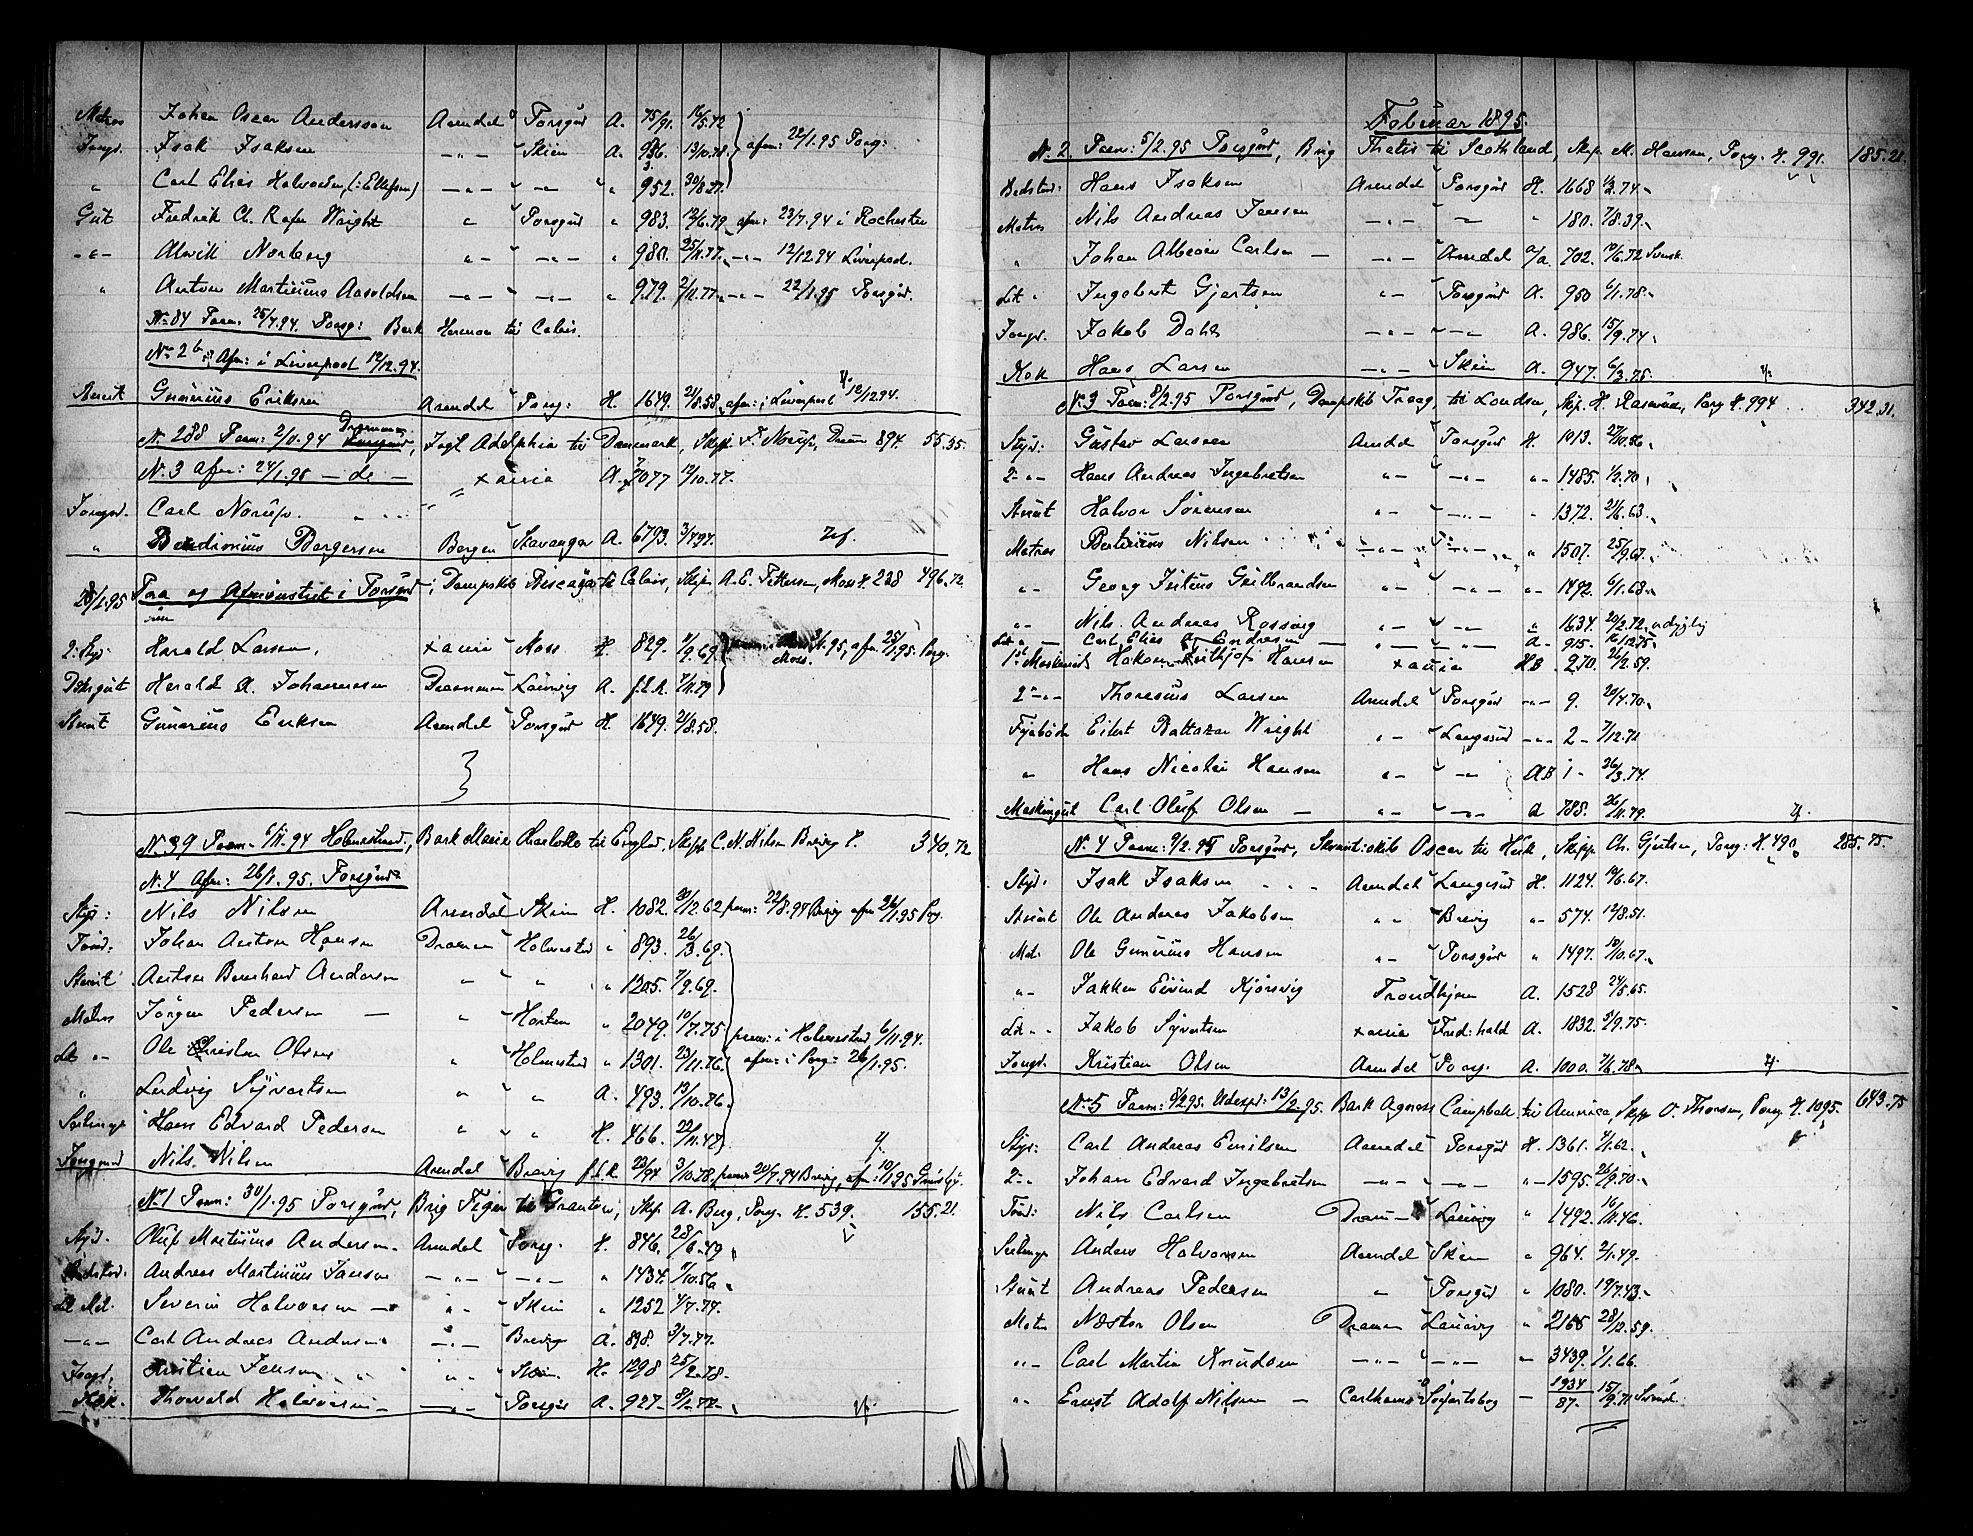 Matros Johan Oscar Andersson Arendal Porsgrd A. 75/91. 16/5.72
Jungd. Isak Isaksen — " — Skien A. 936. 13/10.78 afm: 22/1.95 Porsg:
" Carl Elias Halvorsen (: Ellefsen) — " — " — " 952. 30/8.77.
Gut Fredrik Ch. Rafn Wright " Porsgrd " 983. 12/6.79 afm: 23/7.94 i Rochester
— " — Alwill Norberg " — — " — " 980. 25/11.77. — " — 12/12.94 Liverpool.
" Anton Martinius Aasoldsen — " — — " — " 979. 2/11.77. — " — 22/1.95 Porsgrd.
No 84 Paam. 25/7.94. Porsg: Bark Hermon til Calais.
No 2 b. Afm: i Liverpool 12/12.94.
Stuert Gunerius Eriksen Arendal Porsg: H. 1649. 21/8.58 afm: i Liverpool 12/12 94.
No. 288 Paam: 2/11.94 Drammen, Jagt Adolphia til Danmark, Skipp. F. Norup, Dram 894. 55.35.
No. 3 Afm: 24/1.95 — do — xania A. 7077 12/10.77.
Jungm. Carl Norup.
" Bendinius Bergersen Bergen Stavanger A. 6793 3/4 94.
28/1.95 Paa og Afmönstret i Porsgrd, Dampskib Biscaya til Calais, Skip. A. E. Pettersen, Moss H. 228 496.72
2. Styr. Harald Larsen, xania Moss H. 829. 9/9.69 afm: 25/1.95. Porsg.
Dæksgut Harald A. Johannesen Drammen Laurvig A. f.l.R. 7/11.79
Stuert Gunerius Eriksen Arendal Porsgrd H. 1649. 21/8.58.
No. 39 Paam: 6/11.94 Holmestrand, Bark Marie Charlotte til Englnd, Skipp. C. N. Nilsen Brevig H. 340.72
No. 4 Afm: 26/1.95. Porsgrund
Styr: Nils Nilsen Arendal Skien H. 1082. 30/12.62 paam: 22/8.94 Brevig afm 26/1.95 Porsg.
Tönd. Johan Anton Hansen Drammen Holmestrd " 893. 26/3.69.
Stuert Anton Bernhard Andersen " " " 1205. 7/9.69.
Matros Jörgen Pedersen — " Horten " 2049. 10/7.75 paam: i Holmestrand 6/11.94.
Let " — Ole Christian Olsen " Holmestrd " 1301. 23/11.76. afm: i Porsg: 26/1.95.
" Ludvig Syvertsen " " A. 493. 13/10.76.
Seilmagr Hans Edvard Pedersen " " H. 466. 22/11.47
Jungmand Nils Nilsen Arendal Brevig f.l.R. 23/94 3/10.78. paam 20/7.94 Brevig, afm: 10/1.95 Grimsby.
No. 1 Paam: 30/1.95 Porsgrund, Brig Tiger til Granton, Skip A. Berg, Porsg. H. 539. 155.21.
Styr. Oluf Martinius Andersen. Arendal Porsg. H. 846. 28/6.49
Bedstmd. Andreas Martinius Jansen — " — — " — " 1434. 9/10.56
Let Mat. Severin Halvorsen — " — Skien " 1252 4/7.74.
— " — Carl Andreas Andersen — " — Brevig A. 898. 3/7.77.
Jungd. Kristian Jensen " " Skien. H. 1298 25/2.78.
Kok. Thorvald Halvorsen — — " — Porsgrd A. 927. 8/12.77.
Februar 1895.
No. 2. Paam: 5/2.95 Porsgrund, Brig Thetis til Scothland, Skip. M. Hansen, Porsg. H. 991. 185.21.
Bedstmd: Hans Isaksen Arendal Porsgrd H. 1668 1/2.74.
Matros Nils Andreas Jansen — " — — " 180. 7/8.39.
" Johan Albion Carlsen — — " — Arendal A/A. 702. 19/6.72 Svensk.
Let " Ingebret Gjertsen " — Porsgrd A. 950 6/1.78.
Jungd. Jakob Dahl — " — — " — A. 986. 15/9.74.
Kok Hans Larsen — " — Skien A. 947. 6/3.78.
No. 3 Paam: 8/2.95 Porsgrund, Dampskib Traag, til London, Skip. H. Rasmussen, Porsg H. 994 . . 342.31.
Styr: Gustav Larsen Arendal Porsgrd H. 1013. 27/10.56
2 — " — Hans Andreas Ingebretsen " — — " — " 1485. 1/2.70
Stuert Halvor Sörensen " — — " — " 1372. 24/6.63.
Matros Bertinius Nilsen — " — — " — " 1507. 25/9.67.
" — Georg Julius Gulbrandsen " — — " — " 1492. 6/1.68.
" — Nils Andreas Rossing " — — " — " 1634. 20/2.72. udygtig
Let " — Carl Elias Endresen — — " — — " — A. 915. 16/12.75
1ste Maskinist Hakon Frithjof Hansen xania HB 270. 26/2.59.
2 — " — Thorsius Larsen Arendal Porsgrd — " — 9. 20/4.70.
Fyrböder Eilert Baltazar Wright " — Langesund — " — 2 — 7/12.72
" Hans Nicolai Hansen " — — " — AB 1 — 26/3.74.
Maskingut Carl Oluf Olsen — " — — " — A 785. 26/11.79.
No. 4 Paam: 9/2.95 Porsgrund, Skonnertskib Oscar til Hull, Skipp. Ch. Gjertsen, Porsg: H. 490. 285.75.
Styr. Isak Isaksen . . . Arendal Langesund H. 1124. 10/6.67.
Stuert Ole Andreas Jakobsen " " Brevig " 574. 12/8.51.
Mat. Ole Gunerius Hansen " — Porsgrd " 1497. 10/10.67.
" — Jakken Eivind Kjörsvig Trondhjem A. 1528 24/5.65.
Let " . Jakob Syvertsen xania Fred:hald A. 1832. 5/9.75.
Jungd. Kristian Olsen Arendal Porsg. A. 1000. 7/6.78.
No. 5 Paam: 8/2 95. Udexp: 13/2.95. Bark Agnes Campbell til America, Skipp O. Thorsen, Porsg. H. 1095. 643.75
Styr: Carl Andreas Emilsen Arendal Porsgrd H. 1361. 9/1.62.
2 — " Johan Edvard Ingebretsen — " — — " — " — 1595. 26/9.70.
Tönd: Nils Carlsen Dram — Laurvig " 1492. 16/11.46.
Seilmgr Anders Halvorsen Arendal Skien " 964. 2/1.49.
Stuert Andreas Pedersen " Porsgrd " 1080. 19/7.43.
Matr Nestor Olsen Drammen Laurvig " 2165 28/12.59.
" — Carl Martin Knudsen — " — — " — " 3439. 1/1.66.
" — Ernst Adolf Nilsen — Carlshamn Sölvesborg — 1934/87. 15/9.71 Svensk.